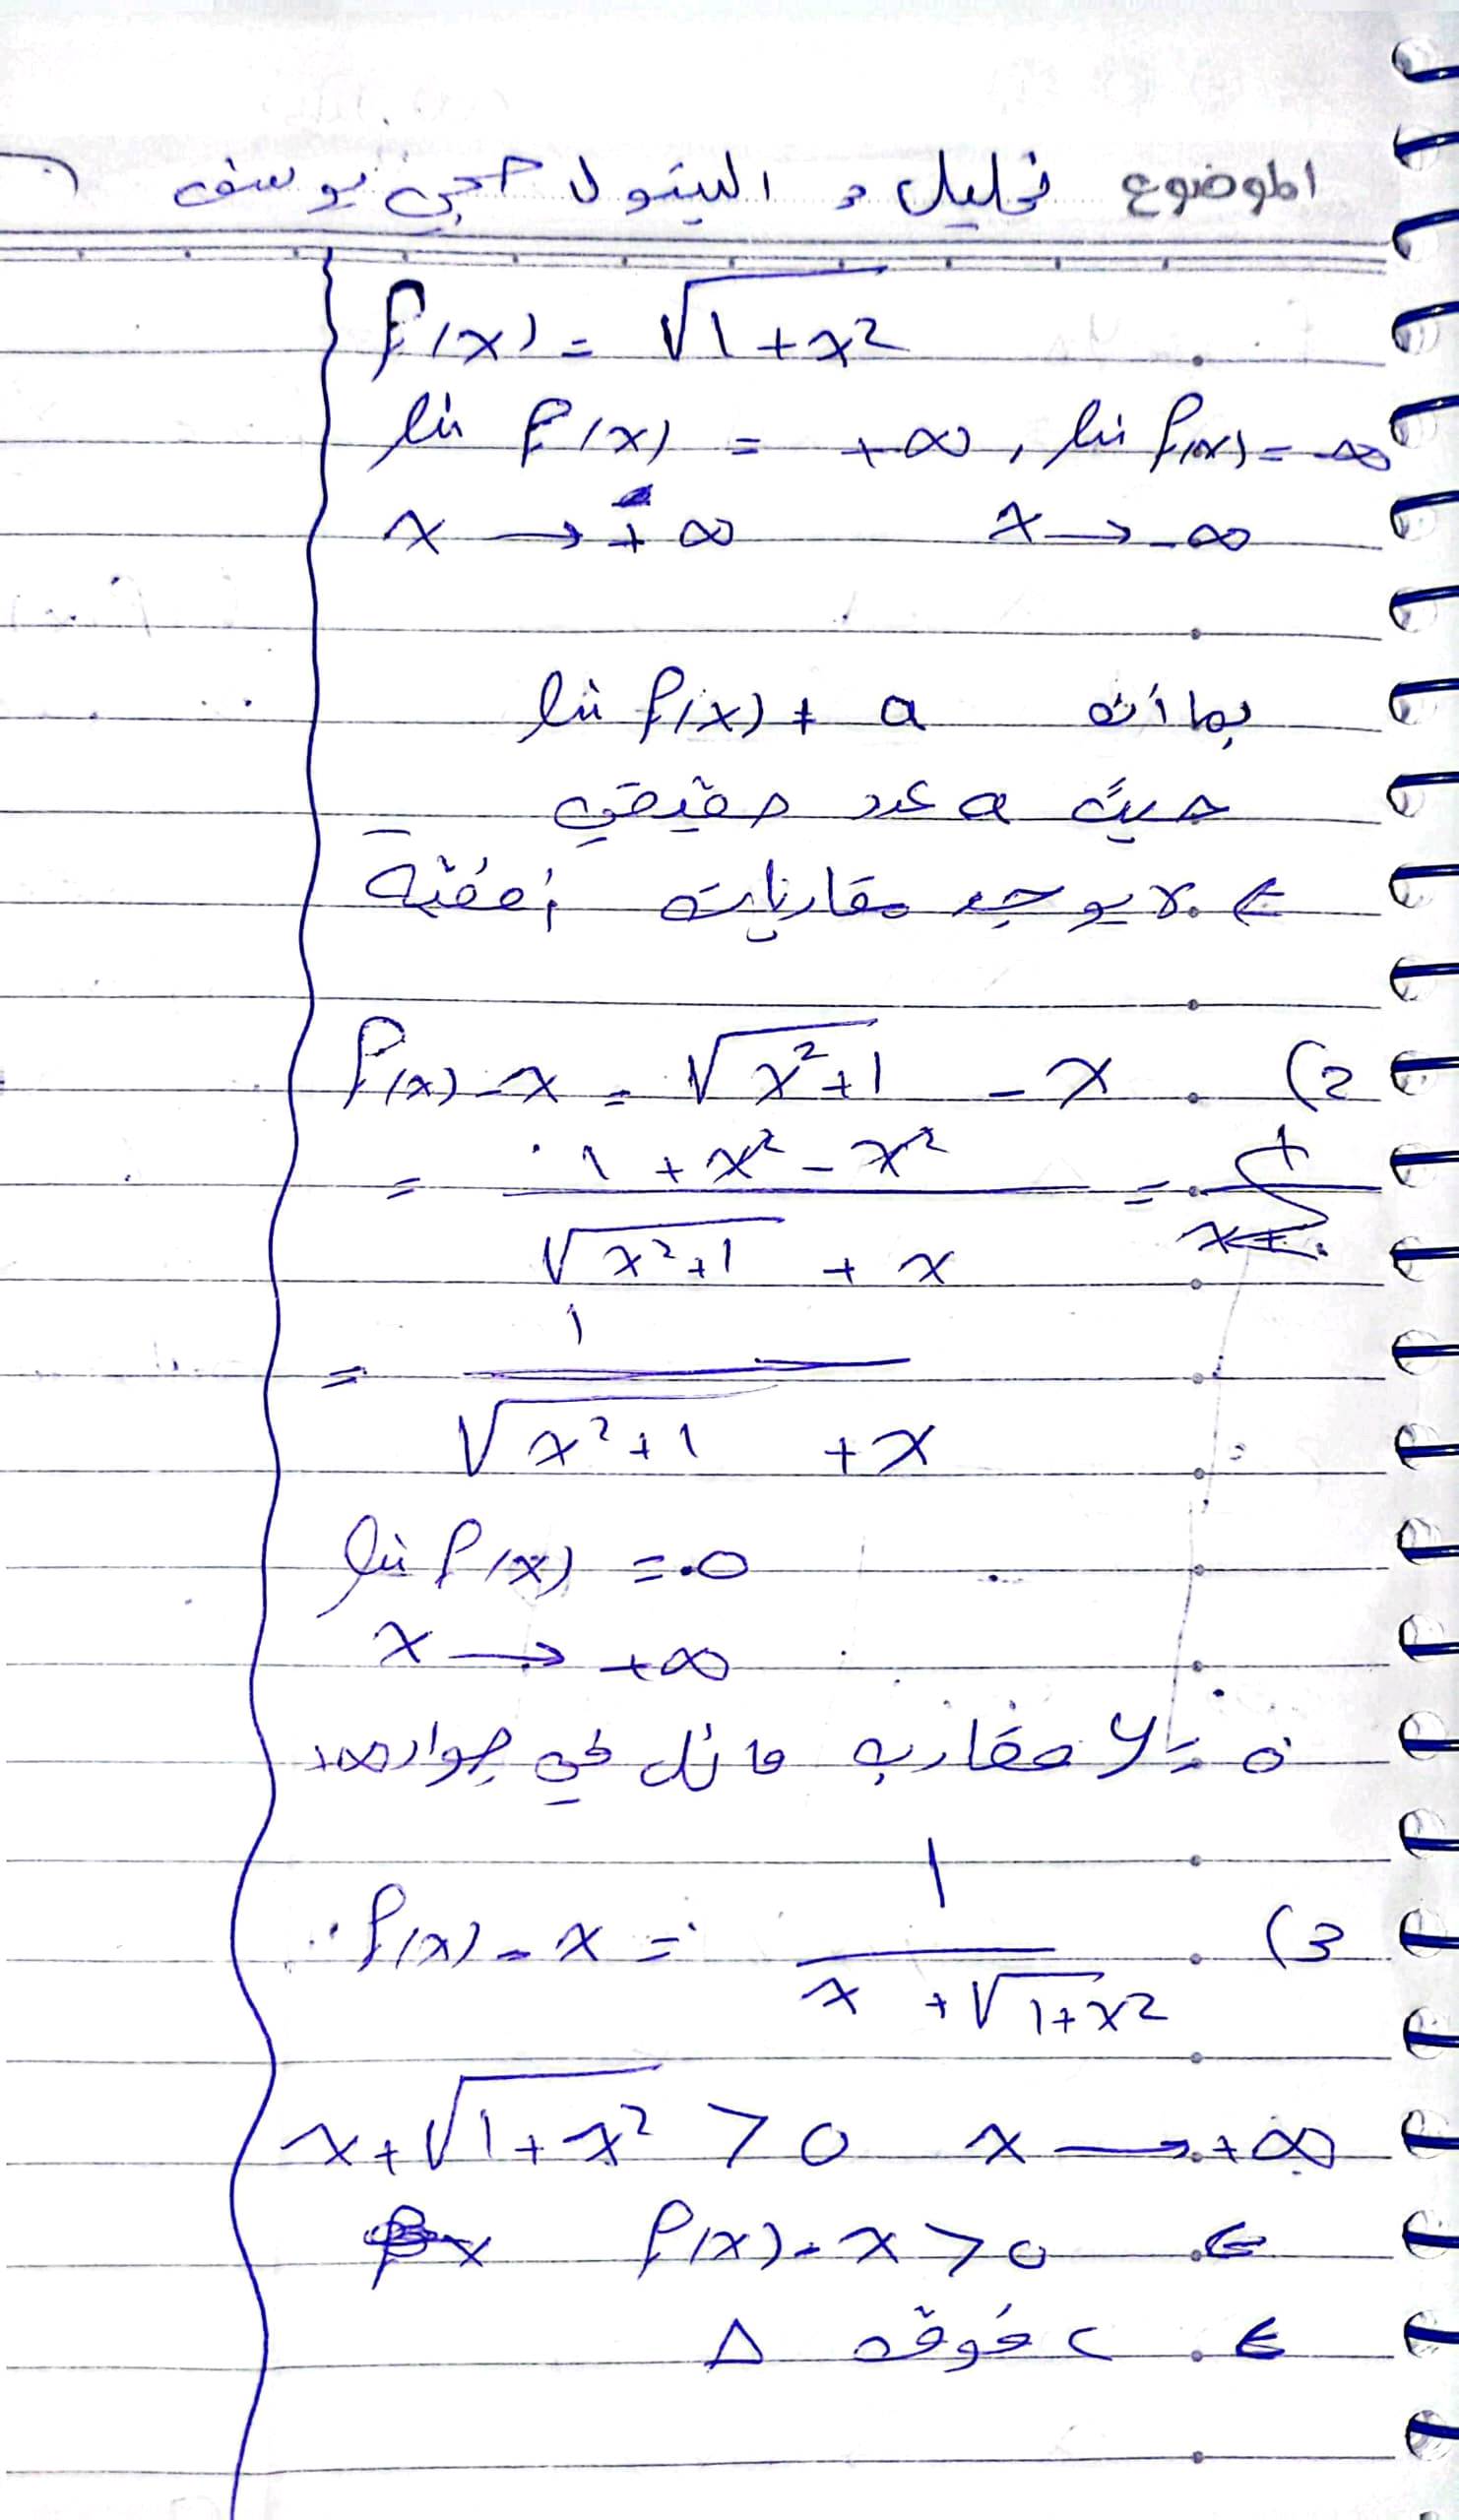 الموضوع تحليل و البتول حجي يوسف
f(x) = √1+x²
lim f(x) = +∞ , lim f(x) = -∞
x → +∞ x → -∞
بما أنه lim f(x) ≠ a
حيث a عدد حقيقي
⇐ لا يوجد مقاربات أفقية
2) f(x) - x = √x²+1 - x
= 1 + x² - x² / √x²+1 + x =
= 1 / √x²+1 + x
lim f(x) = 0
x → +∞
y = مقارب مائل في جوار +∞
3) f(x) - x = 1 / x + √1+x²
x + √1+x² > 0 x → +∞
⇐ f(x) - x > 0
⇐ C فوق Δ